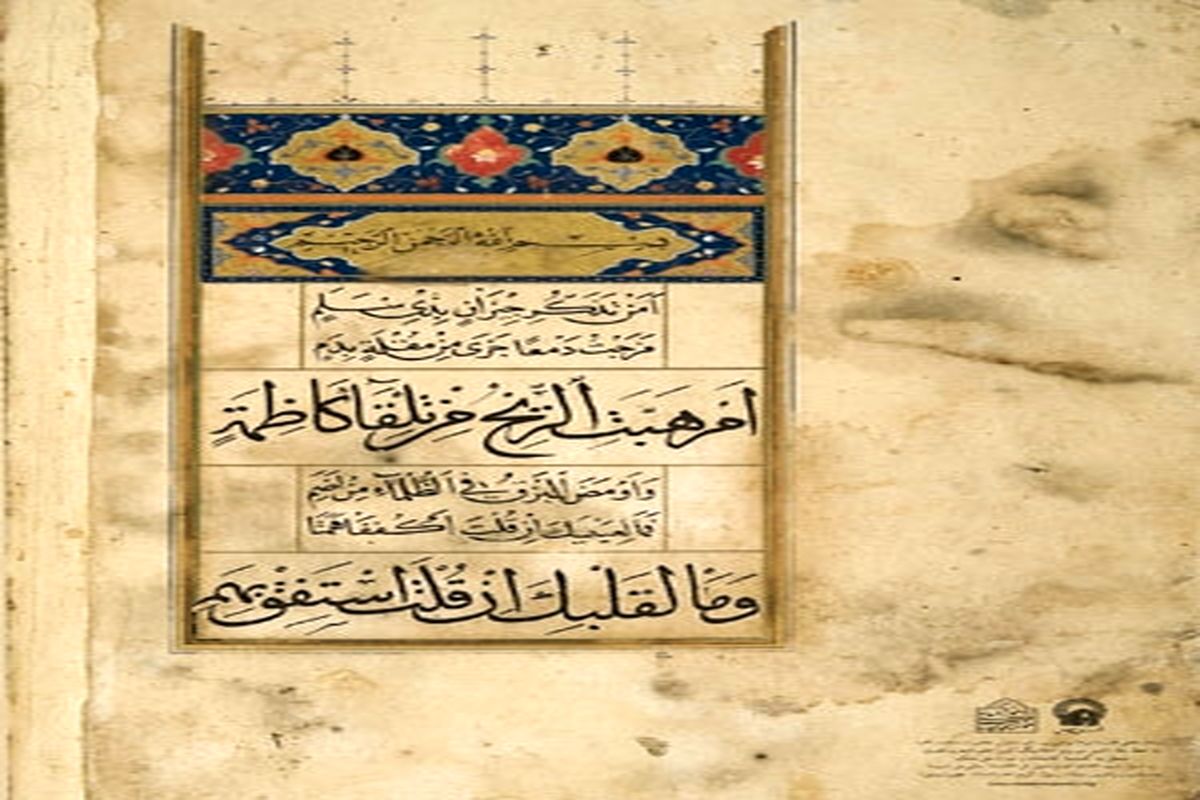 بسم الله الرحمن الرحيم
اَمِنْ تَذَكُّرِ جِيْرَانٍ بِذِي سَلَمٍ
مَزَجْتَ دَمْعًا جَرَى مِنْ مُقْلَةٍ بِدَمٍ
اَمْ هَبَّتِ الرِّيْحُ مِنْ تِلْقَآءِ كَاظِمَةٍ
وَاَوْمَضَ الْبَرْقُ فِي الظَّلْمَآءِ مِنْ اِضَمٍ
فَمَا لِعَيْنَيْكَ اِنْ قُلْتَ اكْفُفَا هَمَتَا
وَمَا لِقَلْبِكَ اِنْ قُلْتَ اسْتَفِقْ يَهِمِ